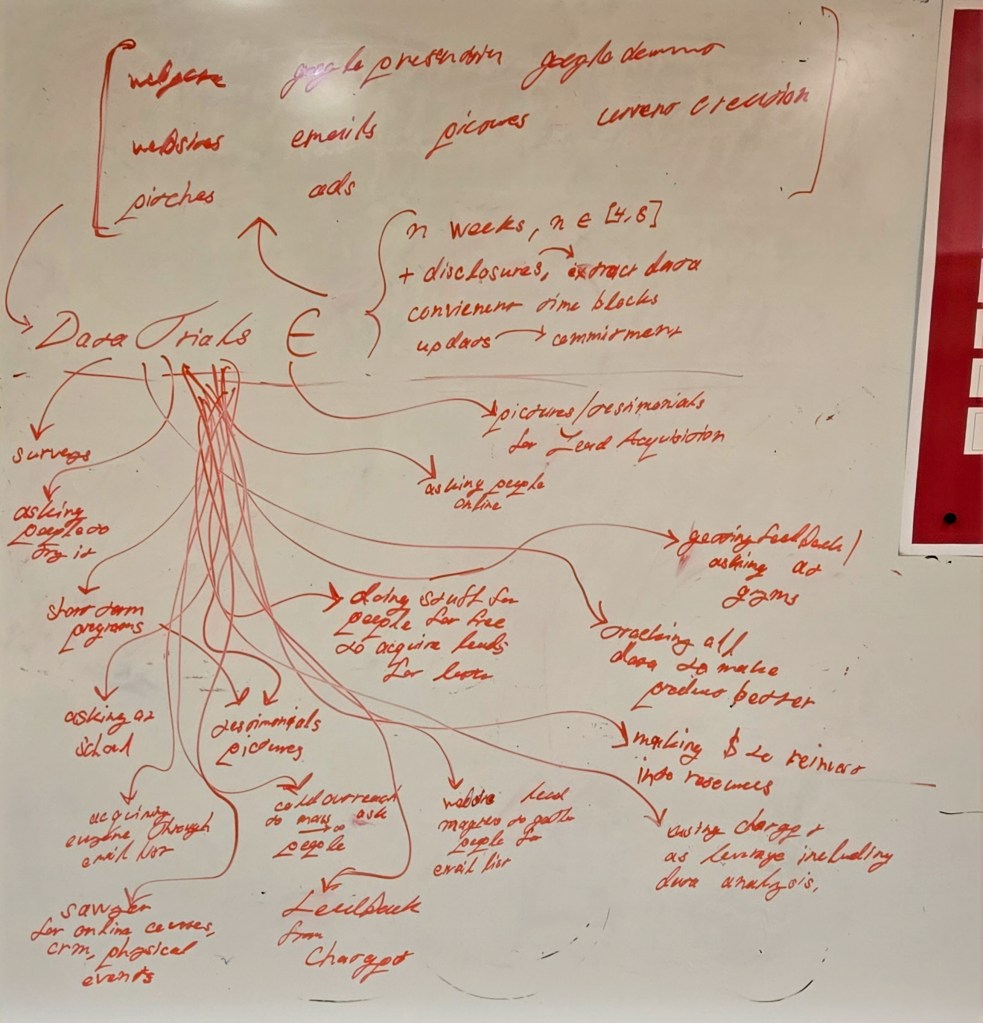 google presentation google
websites emails pictures content creation
pitches ads
n weeks, n ∈ [4,8]
+ disclosures, extract data
convienent time blocks
updats → commitment
Data Trials ∈
pictures/testimonials
for Lead Acquisition
surveys
asking people
online
asking
people to
try it
getting feedback/
asking at
gyms
short term
programs
doing stuff for
people for free
to acquire leads
for later
tracking all
data to make
product better
asking at
school
testimonials
pictures
making $ to reinvest
into resources
acquiring
through
email list
cold outreach
to mass ask
people
website lead
magnet to gather
people for
email list
using chatgpt
as leverage including
data analysis,
sawyer
for online courses,
crm, physical
events
feedback
from
Chatgpt